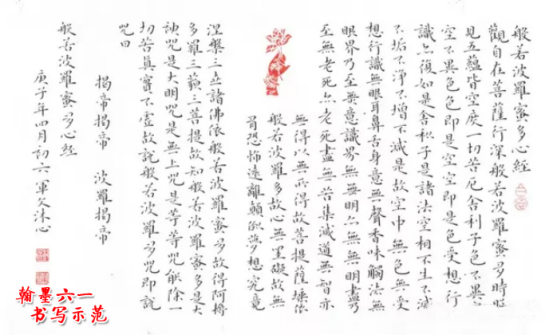 般若波羅蜜多心經
觀自在菩薩行深般若波羅蜜多時照
見五蘊皆空度一切苦厄舍利子色不異
空不異色色即是空空即是色受想行
識亦復如是舍利子是諸法空相不生不滅
不垢不淨不增不減是故空中無色無受
想行識無眼耳鼻舌身意無聲香味觸法無
眼界乃至無意識界無無明亦無無明盡乃
至無老死亦無老死盡無苦集滅道無智亦
無得以無所得故菩提薩埵依
般若波羅多故心無罣礙故無
有恐怖遠離顛倒夢想究竟
涅槃三世諸佛依般若波羅蜜多故得阿耨
多羅三藐三菩提故知般若波羅蜜多是大
神咒是大明咒是無上咒是等等咒能除一
切苦真實不虛故說般若波羅蜜多咒即說
咒曰
揭帝揭帝 波羅揭帝
般若波羅蜜多心經
庚子年四月初六軍文沐心
翰墨六一
书写示范